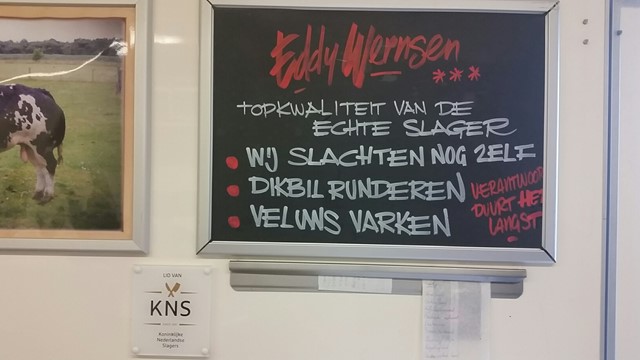 Eddy Wernsen
***
TOPKWALITEIT VAN DE
ECHTE SLAGER
• WIJ SLACHTEN NOG ZELF
• DIKBIL RUNDEREN
• VELUWS VARKEN
VERANTWOOR
DUURT HET
LANGST
LID VAN
KNS
Koninklijke
Nederlandse
Slagers